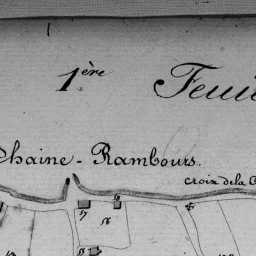 1ère Feuil
Chaine - Rambours.
Croix de la C